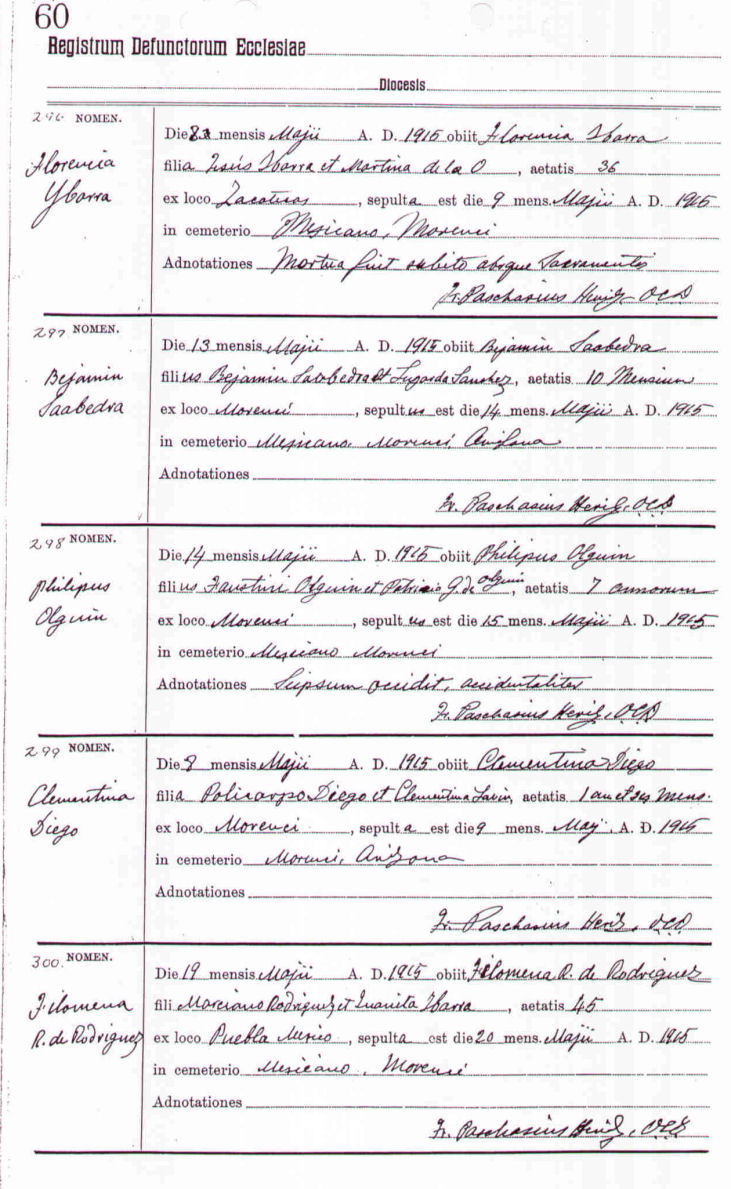 60
Registrum Defunctorum Ecclesiae
Diocesis
296 NOMEN.
Florencia
Ybarra
Die 8 mensis Majii A. D. 1915 obiit Florencia Ibarra
filia Jesús Ibarra et Martina de la O, aetatis 36
ex loco Zacatecas, sepulta est die 9 mens. Majii A. D. 1915
in cemeterio Mexicano, Morenci
Adnotationes Mortua fuit subito absque Sacramentis
Fr. Paschasius Heriz, OCD
297 NOMEN.
Bejamin
Saabedra
Die 13 mensis Majii A. D. 1915 obiit Bejamin Saabedra
filius Bejamin Saabedra et Lugarda Sanchez, aetatis 10 Mensium
ex loco Morenci, sepultus est die 14 mens. Majii A. D. 1915
in cemeterio Mexicano Morenci Arizona
Adnotationes
Fr. Paschasius Heriz, OCD
298 NOMEN.
Philipus
Olguin
Die 14 mensis Majii A. D. 1915 obiit Philipus Olguin
filius Faustini Olguin et G. de Olguin, aetatis 7 annorum
ex loco Morenci, sepultus est die 15 mens. Majii A. D. 1915
in cemeterio Mexicano Morenci
Adnotationes Seipsum occidit, accidentaliter
Fr. Paschasius Heriz, OCD
299 NOMEN.
Clementina
Diego
Die 8 mensis Majii A. D. 1915 obiit Clementina Diego
filia Policarpo Diego et Clementina, aetatis 1 an et ses mens.
ex loco Morenci, sepulta est die 9 mens. Maij. A. D. 1915
in cemeterio Morenci, Arizona
Adnotationes
Fr. Paschasius Heriz, OCD
300. NOMEN.
Filomena
R. de Rodriguez
Die 19 mensis Majii A. D. 1915 obiit Filomena R. de Rodriguez
fili Marciano Rodriguez et Juanita Ibarra, aetatis 45
ex loco Puebla Mexico, sepulta est die 20 mens. Majii A. D. 1915
in cemeterio Mexicano, Morenci
Adnotationes
Fr. Paschasius Heriz, OCD